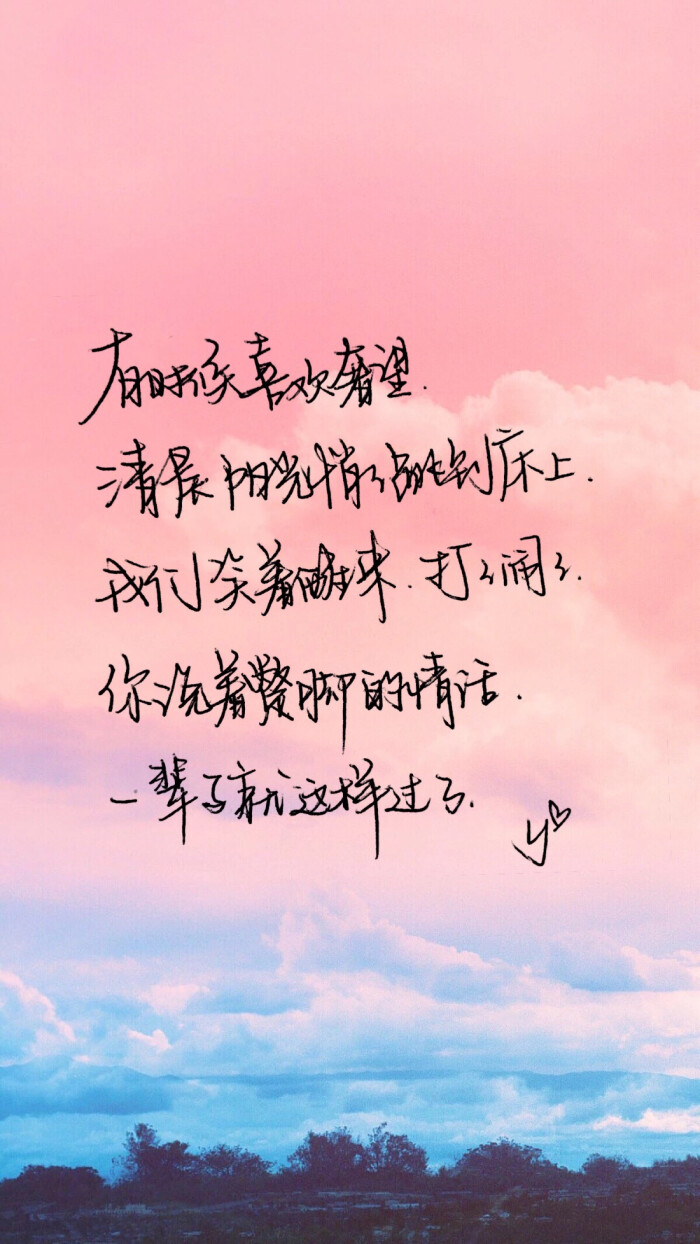 有时候喜欢奢望.
清晨阳光悄悄跑到床上.
我们笑着醒来.打打闹闹.
你说着蹩脚的情话.
一辈子就这样过了.
y♡